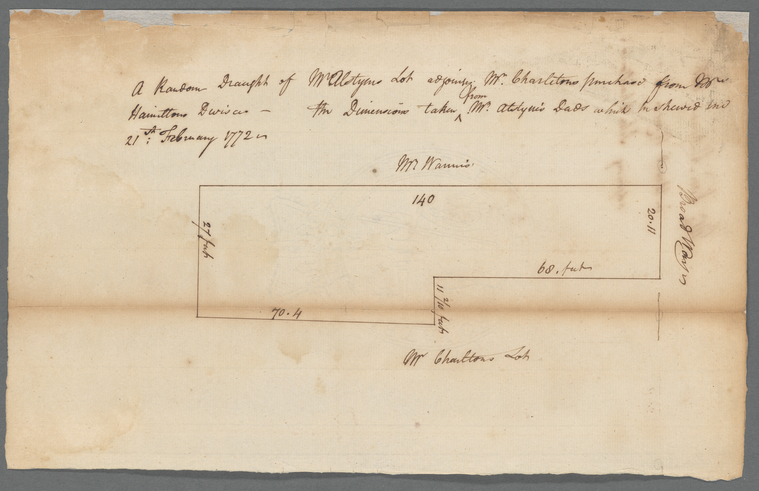 A Random Draught of Mr Alstyns Lot adjoining Mr. Charletons purchase from Mrs
Hamiltons Devises — the Dimensions taken from Mr. Alstyn's Deeds which he shewed me
21st: February 1772
Mr Warins
140
27 feet
20.11
Broad Way
68. feet
11 2/12 feet
70.4
Mr Charltons Lot